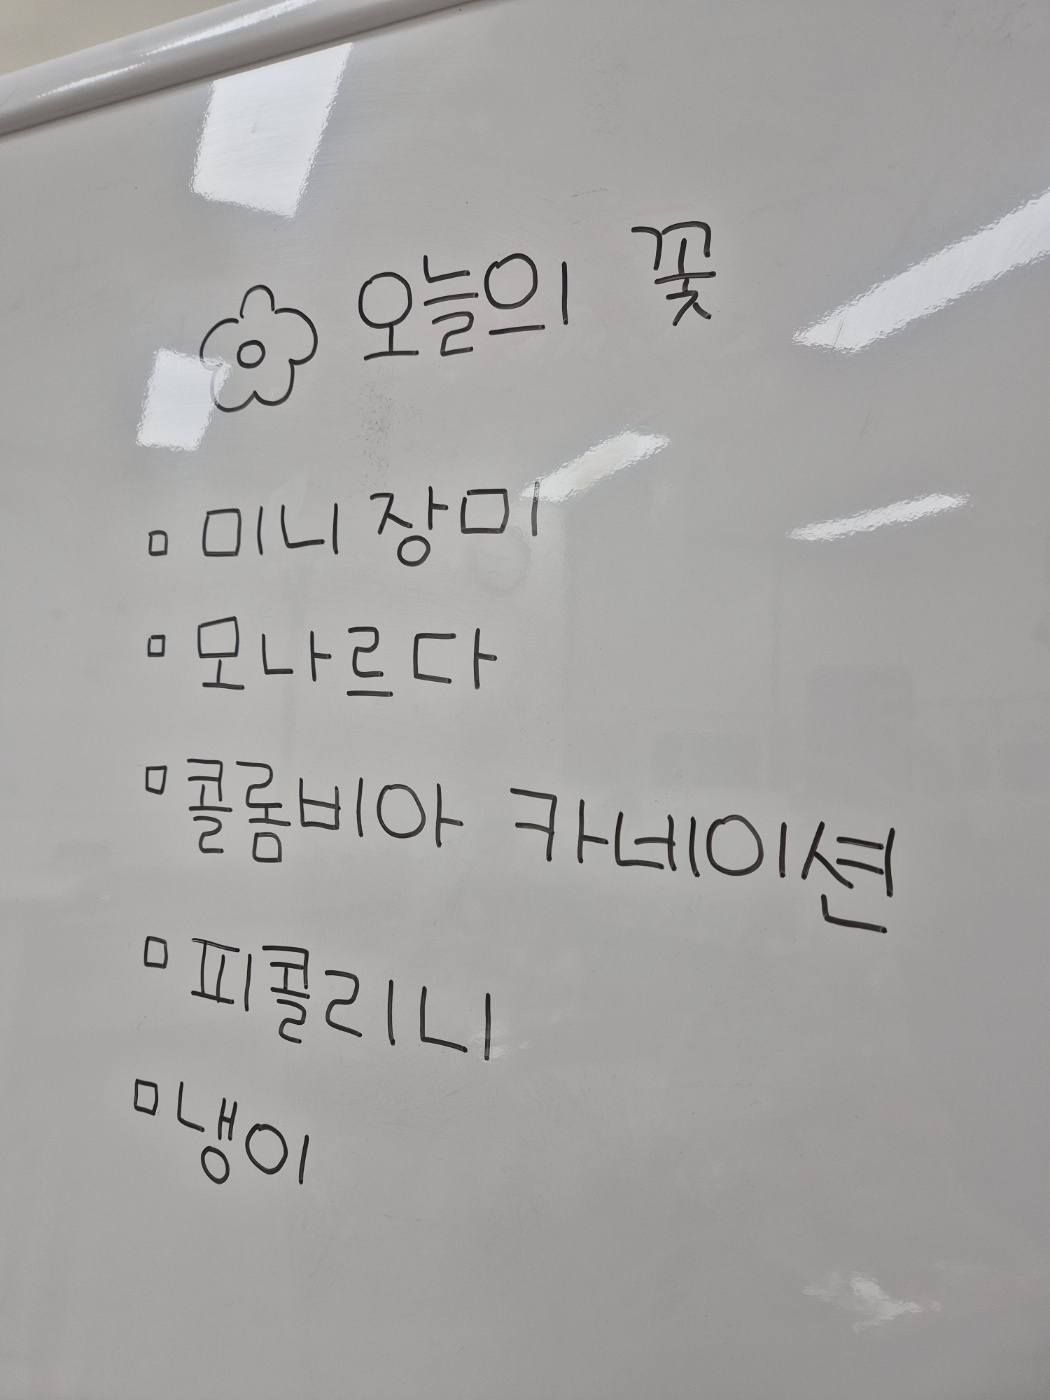 오늘의 꽃
▫ 미니 장미
▫ 모나르다
▫ 콜롬비아 카네이션
▫ 피콜리니
▫ 냉이